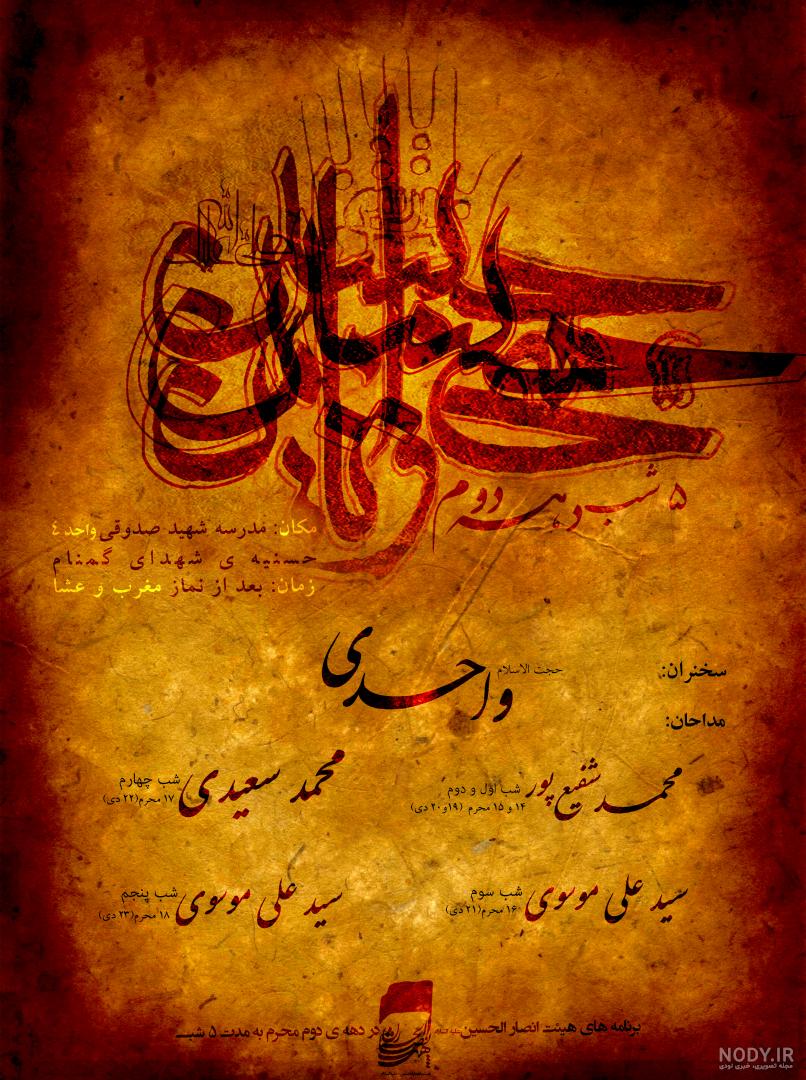 ۵ شب دهه دوم
مکان: مدرسه شهید صدوقی واحد ٤
حسنیه ی شهدای گمنام
زمان: بعد از نماز مغرب و عشا
سخنران:
حجت الاسلام واحدی
مداحان:
محمد شفیع پور شب اوّل و دوم
۱۴ و ۱۵ محرم (۱۹و۲۰ دی)
محمد سعیدی شب چهارم
۱۷ محرم(۲۲ دی)
سید علی موسوی شب سوم
۱۶ محرم(۲۱ دی)
سید علی موسوی شب پنجم
۱۸ محرم(۲۳ دی)
برنامه های هیئت انصار الحسین در دهه ی دوم محرم به مدت ۵ شب
NODY.IR
مجله تصویری، خبری نودی